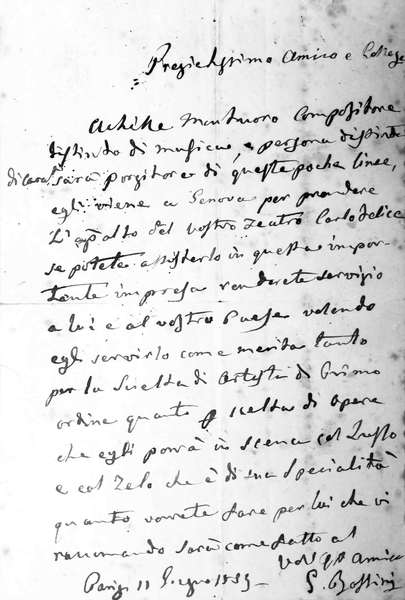 Pregiatissimo Amico e Collega
Achille Montuoro Compositore
distinto di musica, e persona distinta
di Casa sarà porgitore di queste poche linee,
egli viene a Genova per prendere
L'appalto del vostro Teatro Carlo Felice
se potete assisterlo in questa impor-
tante impresa renderete servizio
a lui e al vostro Paese volendo
egli servirlo come merita tanto
per la scielta di Artisti di Primo
ordine quanto p scelta di opere
che egli porrà in scena col Lusso
e col Zelo che è di sua Specialità
quanto vorrete fare per lui che vi
raccomando sarà come fatto al
Amico
Parigi 11 Giugno
G. Rossini